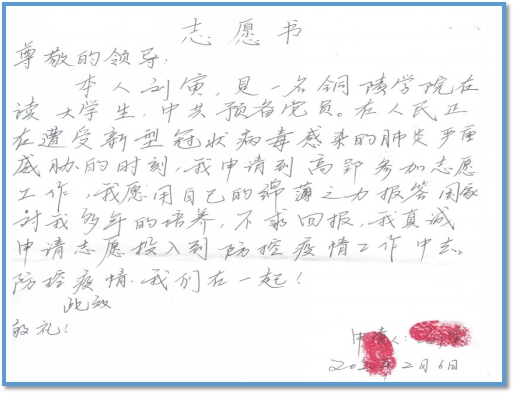 志愿书
尊敬的领导:
本人刘寅,是一名铜陵学院在
读大学生,中共预备党员。在人民正
在遭受新型冠状病毒感染的肺炎严重
威胁的时刻,我申请到高邮参加志愿
工作,我愿用自己的绵薄之力报答国家
对我多年的培养,不求回报,我真诚
申请志愿投入到防控疫情工作中去。
防控疫情,我们在一起!
此致
敬礼!
申请人:
年2月6日